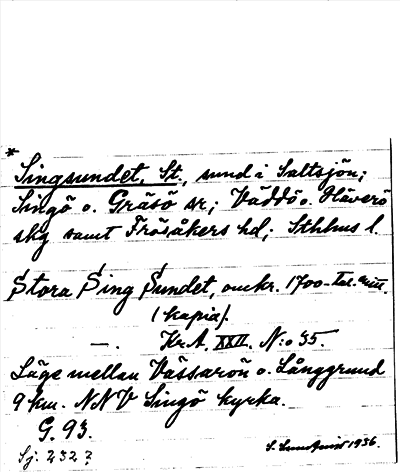 *
Singsundet, St., sund i Saltsjön;
Singö o. Gräsö sr.; Väddö o. Häverö
skg samt Frösåkers hd; Sthlms l.
Stora Sing Sundet, omkr. 1700-tal. mitt.
(kopia).
—. Kr.A. XXII. N:o 35.
Läge mellan Vässarön o. Långgrund
9 km. NNV Singö kyrka.
G. 93.
Sj. 232 ?
S. 1936.